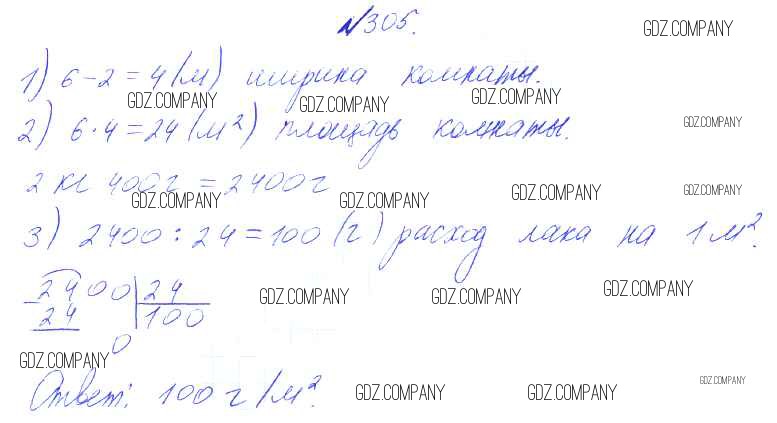 №305.
GDZ.COMPANY
1) 6-2=4(м) ширина комнаты.
GDZ.COMPANY GDZ.COMPANY GDZ.COMPANY
2) 6·4=24(м²) площадь комнаты.
GDZ.COMPANY
2 кг 400г = 2400г
GDZ.COMPANY GDZ.COMPANY GDZ.COMPANY GDZ.COMPANY
3) 2400:24=100(г) расход лака на 1м².
2400 | 24
GDZ.COMPANY GDZ.COMPANY GDZ.COMPANY
24 100
0
GDZ.COMPANY
Ответ: 100 г/м².
GDZ.COMPANY GDZ.COMPANY GDZ.COMPANY